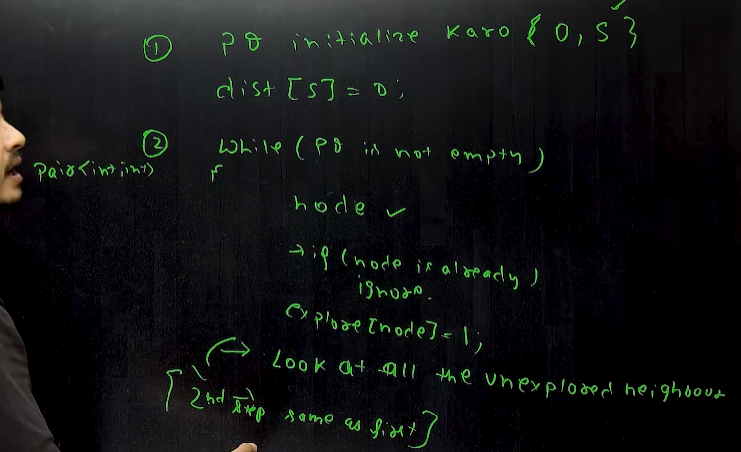 ① PQ initialize Karo { 0, S }
dist [S] = 0;
② While ( PQ is not empty )
Pair<int,int>
{
node ✓
→ if (node is already)
ignore.
explore[node] = 1;
→ Look at all the unexplored neighbour
[ 2nd step same as first ]